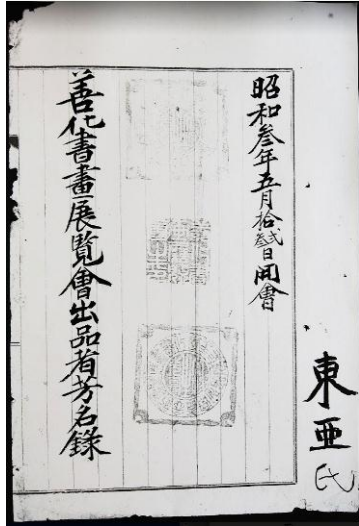 昭和叁年五月拾弐叁日開會
善化書畫展覧會出品者芳名錄
東亜
氏